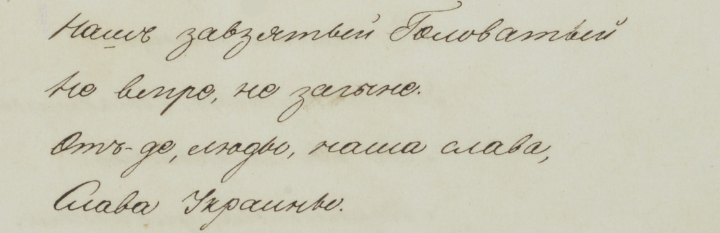 Нашъ завзятый Головатый
Не вмре, не загыне.
Отъ-де, люды, наша слава,
Слава Украины.